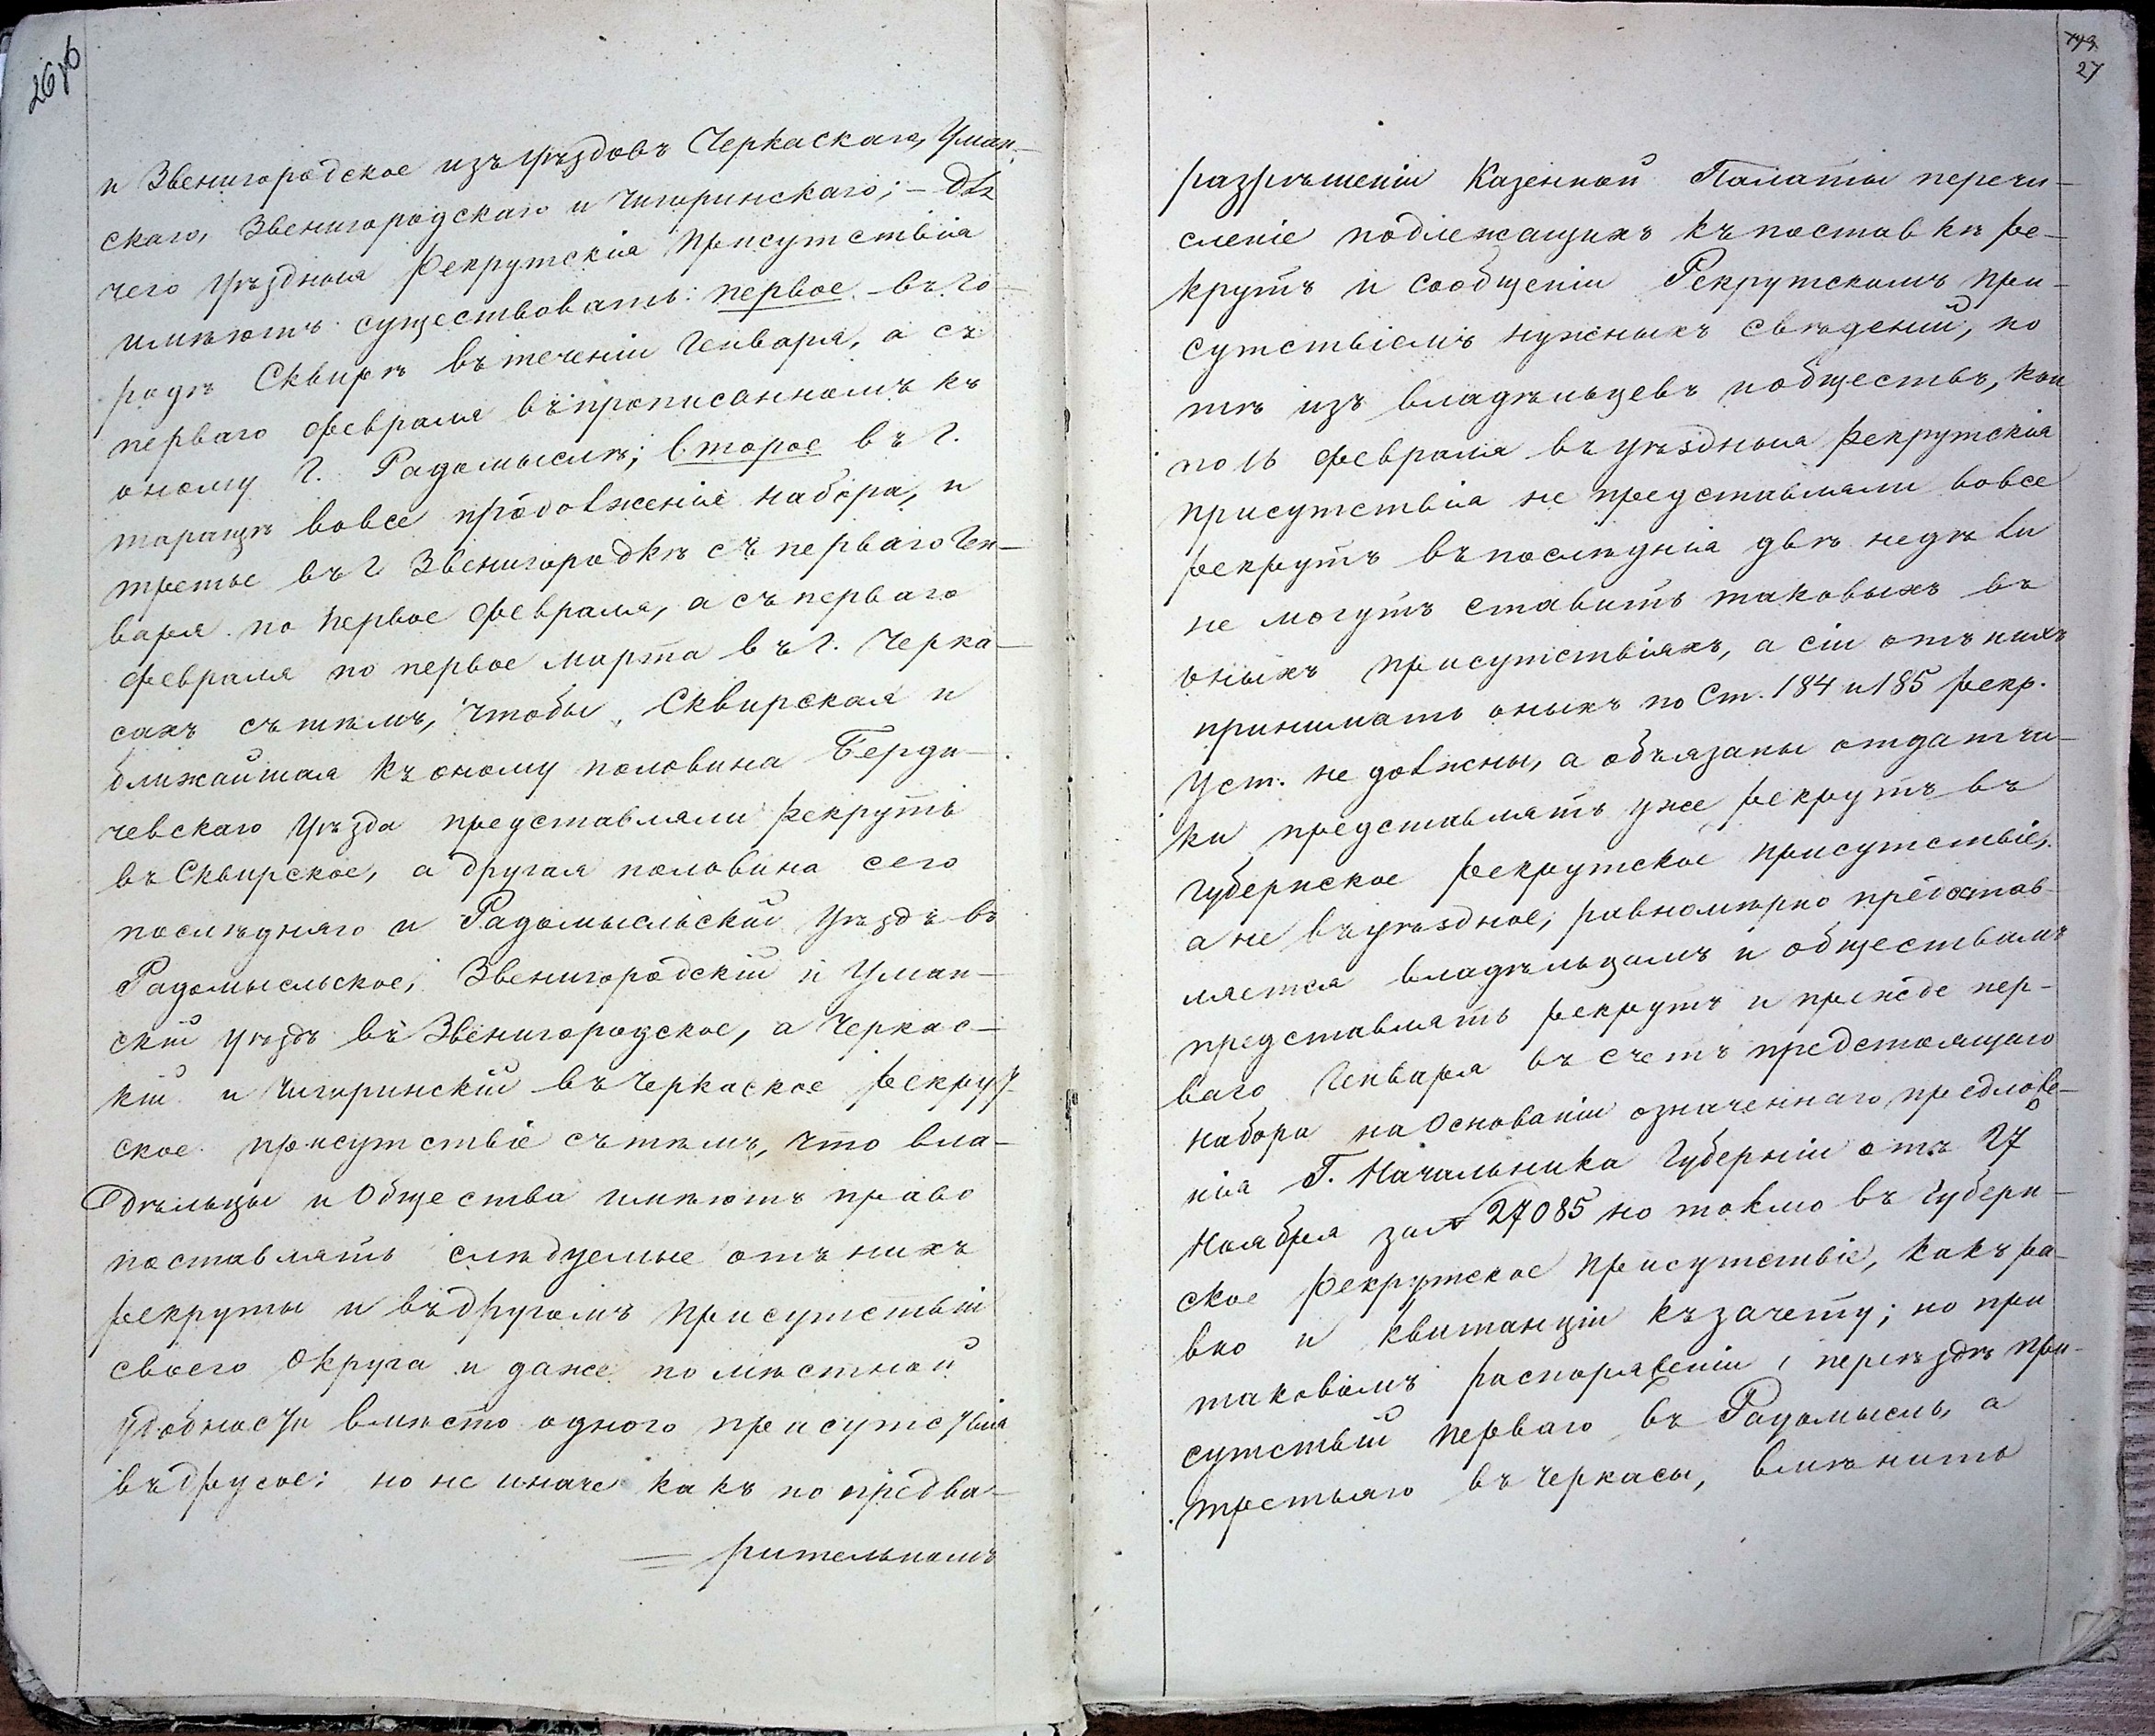 26 об
и Звенигородское изъ уѣздовъ Черкаскаго, Уман-
скаго, Звенигородскаго и Чигиринскаго; – для
чего уѣздныя Рекрутскія Присутствія
имѣютъ существовать: первое въ го-
родѣ Сквирѣ въ теченіи Генваря, а съ
перваго февраля въ прописанномъ къ
оному г. Радомыслѣ; второе въ г.
таращѣ вовсе продолженіе набора, и
третье въ г Звенигородкѣ съ перваго Ген-
варя по первое февраля, а съ перваго
февраля по первое марта въ г. Черка-
сахъ съ тѣмъ, чтобы Сквирская и
ближайшая къ оному половина Берди-
чевскаго уѣзда представляли рекрутъ
въ Сквирское, а другая половина сего
послѣдняго и Радомысльскій уѣздъ въ
Радомысльское; Звенигородскій и Уман-
скій уѣздъ въ Звенигородское, а Черкас-
кій и Чигиринскій въ Черкаское рекрут-
ское присутствіе съ тѣмъ, что вла-
дѣльцы и Общества имѣютъ право
поставлять слѣдуемые отъ нихъ
рекруты и въ другомъ присутствіи
своего Округа и даже по мѣстной
удобности вмѣсто одного присутствія
въ другое; но не иначе какъ по предва-
= рительномъ
27
разрѣшеніи Казенной Палаты перечи-
сленіе подлежащихъ къ поставкѣ ре-
крутъ и сообщеніи Рекрутскимъ при-
сутствіямъ нужныхъ свѣденій, но
тѣ изъ владѣльцевъ и обществъ, кои
по 16 февраля въ уѣздныя рекрутскія
присутствія не представляли вовсе
рекрутъ въ послѣднія двѣ недѣли
не могутъ ставить таковыхъ въ
оныхъ присутствіяхъ, а сіи отъ нихъ
принимать оныхъ по Ст. 184 и 185 рекр.
Уст. не должны, а обязаны отдатчи-
ки представлять уже рекрутъ въ
Губернское рекрутское присутствіе,
а не въ уѣздное; равномѣрно предостав-
ляется владѣльцамъ и обществамъ
представлять рекрутъ и прежде пер-
ваго Генваря въ счетъ предстоящаго
набора на Основаніи означеннаго предложе-
нія Г. Начальника Губерніи отъ 27
Ноября за № 27085 но токмо въ Губерн-
ское рекрутское присутствіе, какъ ра-
вно и квитанціи къ зачету; но при
таковомъ распоряженіи, переѣздъ при-
сутствій перваго въ Радомысль, а
третьяго въ Черкасы, вмѣнить